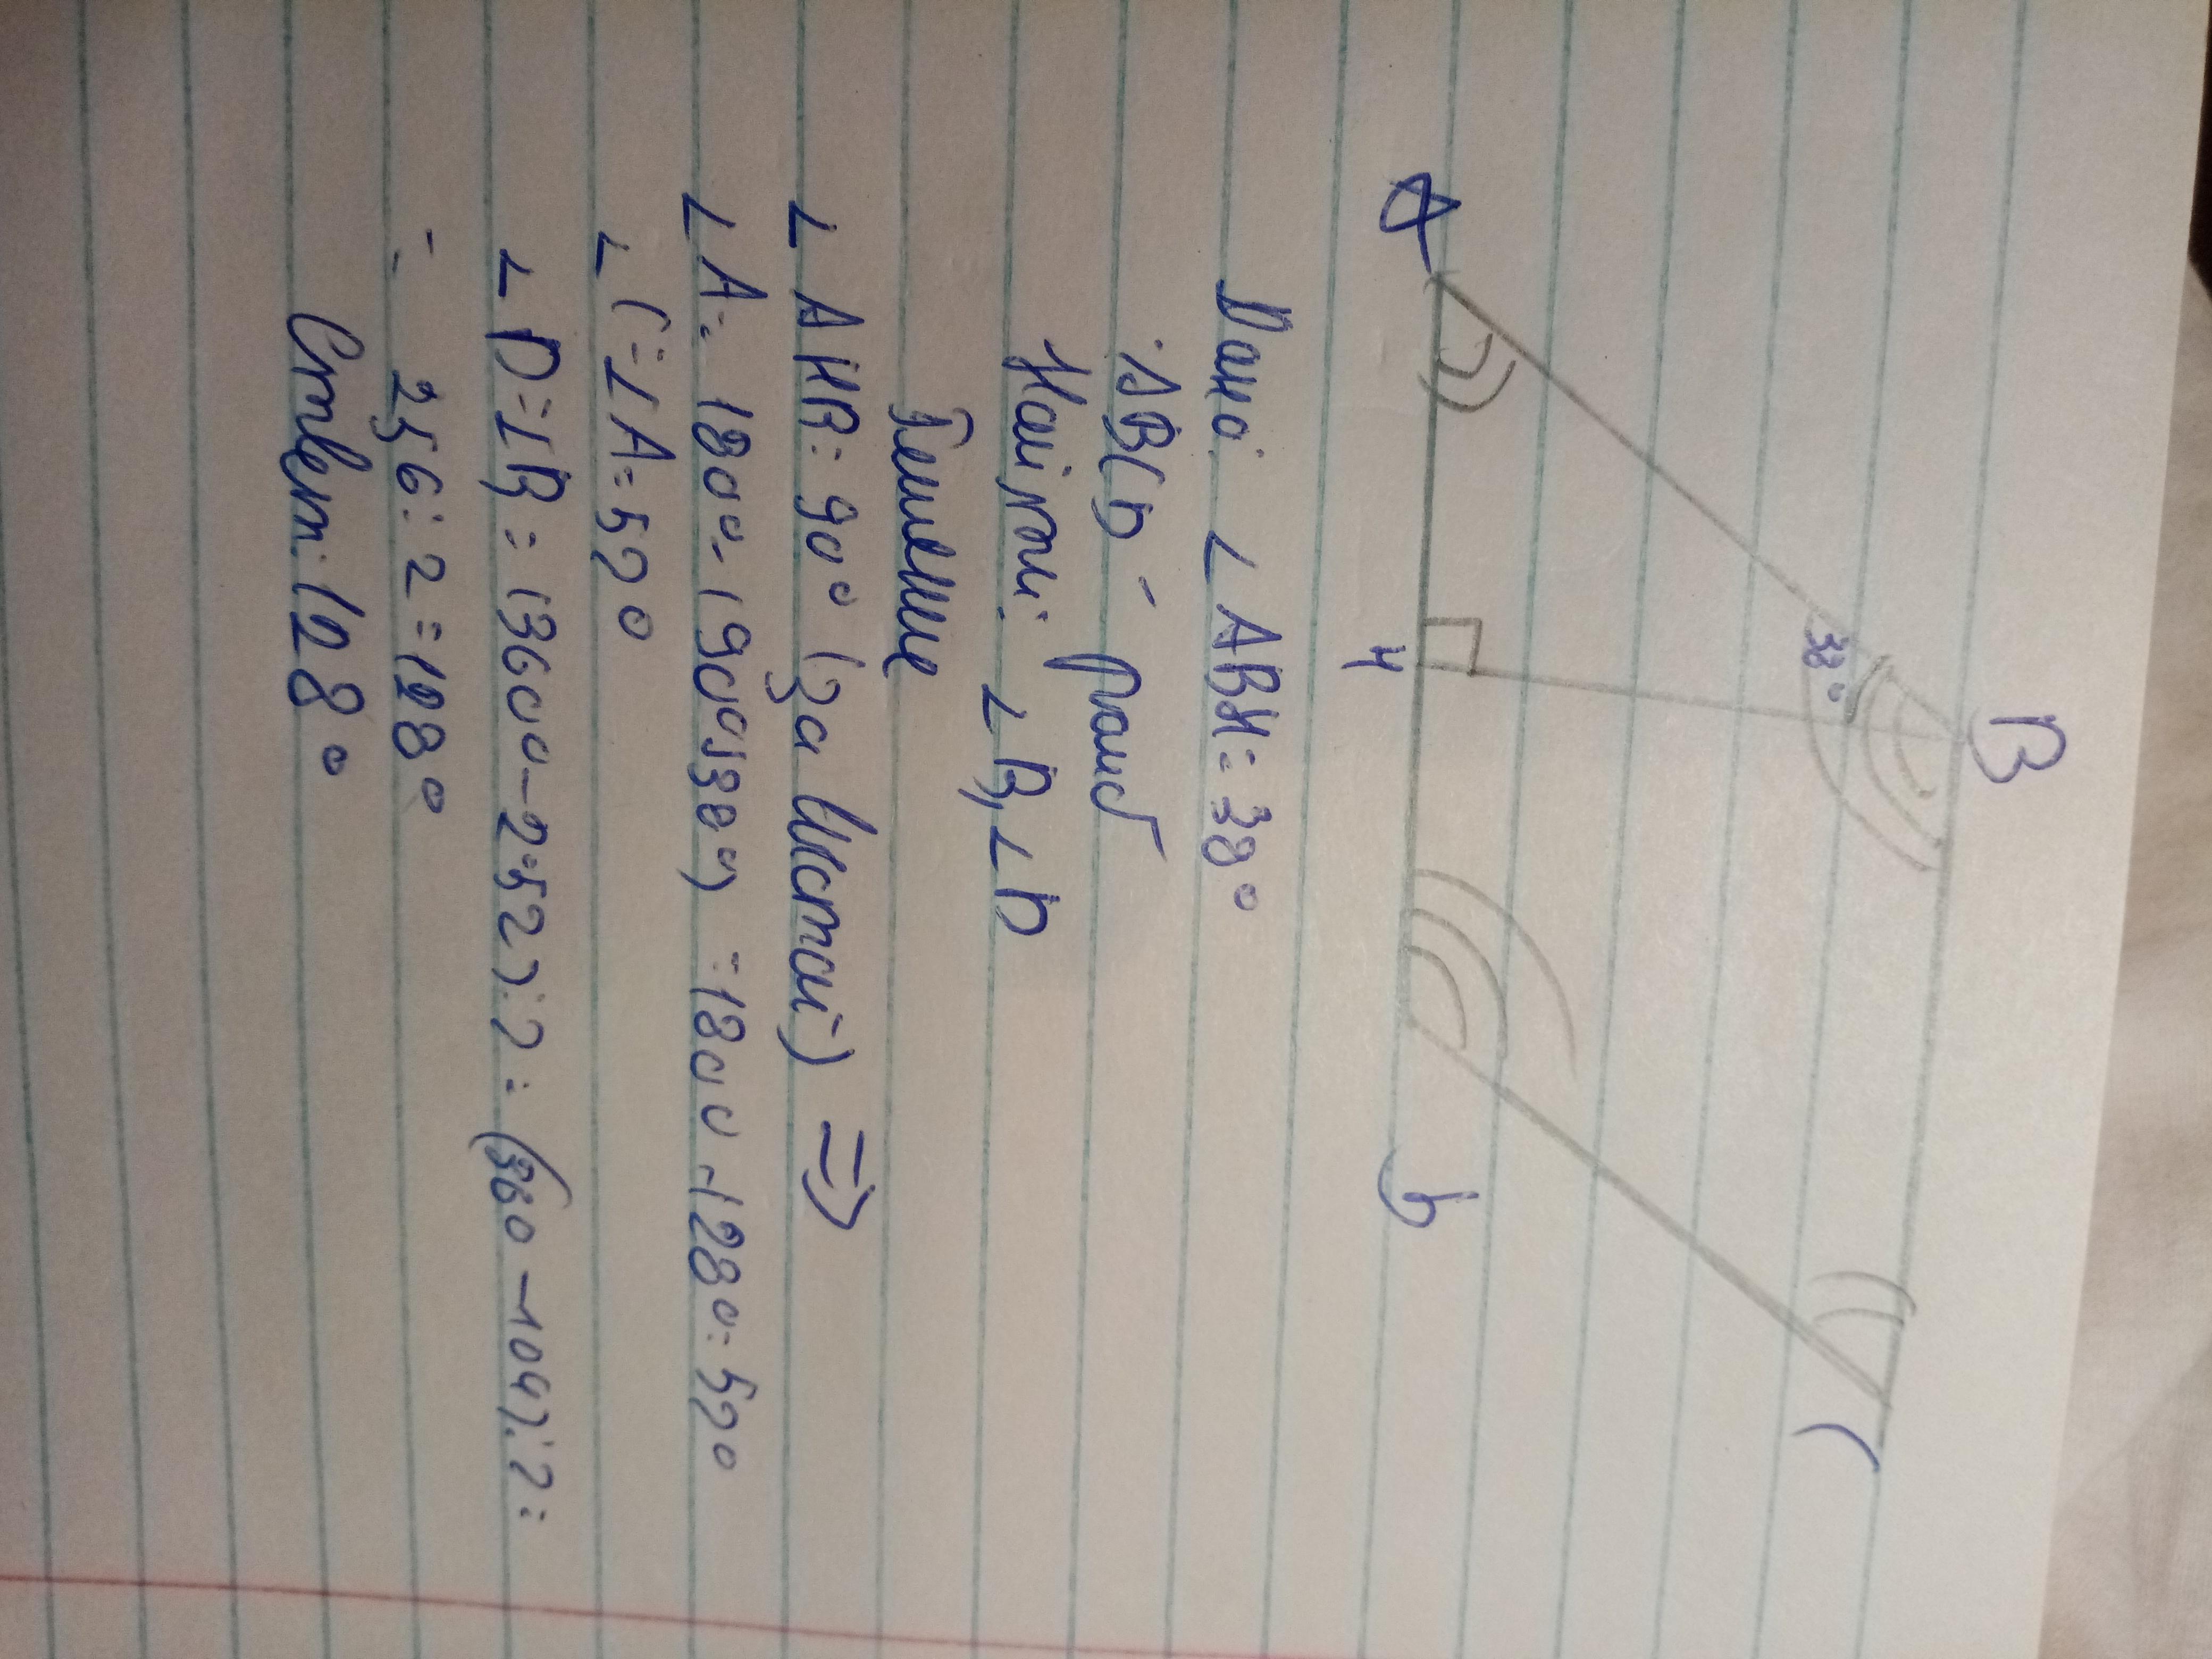 B
38°
A
H
D
C
Дано: ∠ABH = 38°
ABCD - ромб
Найти: ∠B, ∠D
Решение
∠AHB = 90° (за Истой) =>
∠A = 180° - (90°+38°) = 180° - 128° = 52°
∠C = ∠A = 52°
∠D = ∠B = (360° - 2·52) : 2 = (360 - 104) : 2 =
= 256 : 2 = 128°
Ответ: 128°